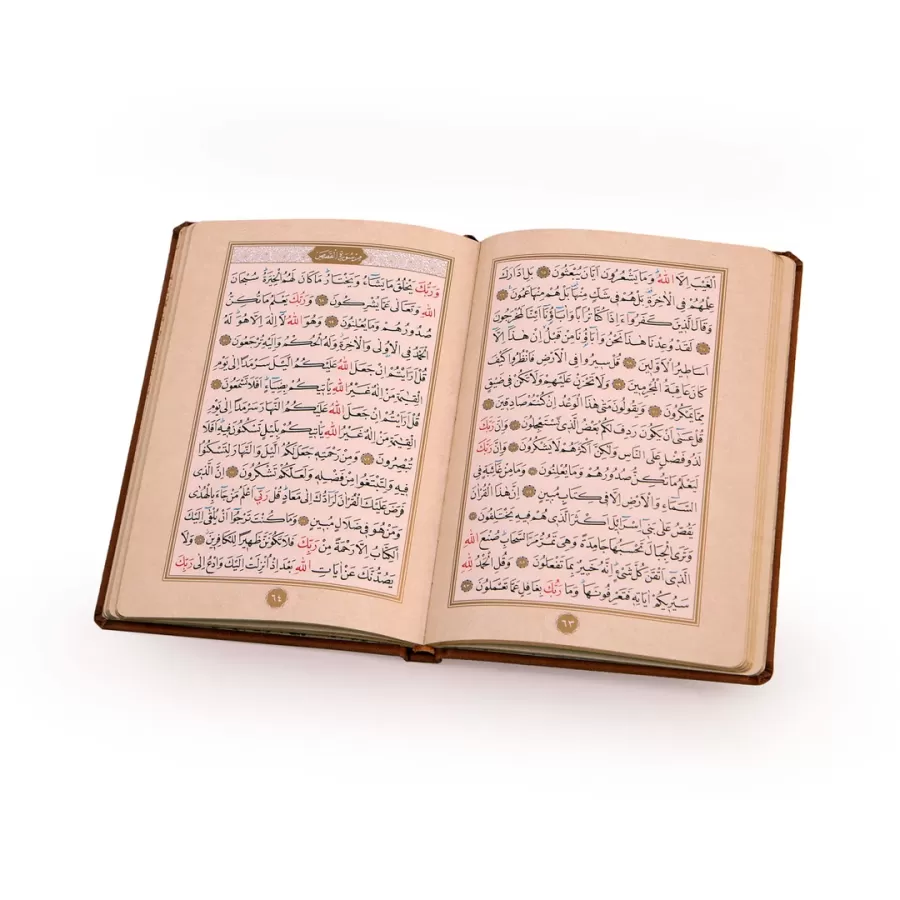 الْغَيْبَ اِلَّا اللّٰهُ وَمَا يَشْعُرُونَ اَيَّانَ يُبْعَثُونَ بَلِ ادَّارَكَ
عِلْمُهُمْ فِي الْاٰخِرَةِ بَلْ هُمْ فِي شَكٍّ مِنْهَا بَلْ هُمْ مِنْهَا عَمُونَ
وَقَالَ الَّذِينَ كَفَرُوا ءَاِذَا كُنَّا تُرَابًا وَاٰبَاؤُنَا اَئِنَّا لَمُخْرَجُونَ
لَقَدْ وُعِدْنَا هٰذَا نَحْنُ وَاٰبَاؤُنَا مِنْ قَبْلُ اِنْ هٰذَا اِلَّا
اَسَاطِيرُ الْاَوَّلِينَ قُلْ سِيرُوا فِي الْاَرْضِ فَانْظُرُوا كَيْفَ
كَانَ عَاقِبَةُ الْمُجْرِمِينَ وَلَا تَحْزَنْ عَلَيْهِمْ وَلَا تَكُنْ فِي ضَيْقٍ
مِمَّا يَمْكُرُونَ وَيَقُولُونَ مَتٰى هٰذَا الْوَعْدُ اِنْ كُنْتُمْ صَادِقِينَ
قُلْ عَسٰى اَنْ يَكُونَ رَدِفَ لَكُمْ بَعْضُ الَّذِي تَسْتَعْجِلُونَ وَاِنَّ رَبَّكَ
لَذُو فَضْلٍ عَلَى النَّاسِ وَلٰكِنَّ اَكْثَرَهُمْ لَا يَشْكُرُونَ وَاِنَّ رَبَّكَ
لَيَعْلَمُ مَا تُكِنُّ صُدُورُهُمْ وَمَا يُعْلِنُونَ وَمَا مِنْ غَائِبَةٍ فِي
السَّمَاءِ وَالْاَرْضِ اِلَّا فِي كِتَابٍ مُبِينٍ اِنَّ هٰذَا الْقُرْاٰنَ
يَقُصُّ عَلٰى بَنِي اِسْرَائِلَ اَكْثَرَ الَّذِي هُمْ فِيهِ يَخْتَلِفُونَ
وَتَرَى الْجِبَالَ تَحْسَبُهَا جَامِدَةً وَهِيَ تَمُرُّ مَرَّ السَّحَابِ صُنْعَ اللّٰهِ
الَّذِي اَتْقَنَ كُلَّ شَيْءٍ اِنَّهُ خَبِيرٌ بِمَا تَفْعَلُونَ وَقُلِ الْحَمْدُ لِلّٰهِ
سَيُرِيكُمْ اٰيَاتِهِ فَتَعْرِفُونَهَا وَمَا رَبُّكَ بِغَافِلٍ عَمَّا تَعْمَلُونَ
٦٣
سورة القصص
وَرَبُّكَ يَخْلُقُ مَا يَشَاءُ وَيَخْتَارُ مَا كَانَ لَهُمُ الْخِيَرَةُ سُبْحَانَ
اللّٰهِ وَتَعَالٰى عَمَّا يُشْرِكُونَ وَرَبُّكَ يَعْلَمُ مَا تُكِنُّ
صُدُورُهُمْ وَمَا يُعْلِنُونَ وَهُوَ اللّٰهُ لَا اِلٰهَ اِلَّا هُوَ لَهُ
الْحَمْدُ فِي الْاُولٰى وَالْاٰخِرَةِ وَلَهُ الْحُكْمُ وَاِلَيْهِ تُرْجَعُونَ
قُلْ اَرَاَيْتُمْ اِنْ جَعَلَ اللّٰهُ عَلَيْكُمُ الَّيْلَ سَرْمَدًا اِلٰى يَوْمِ
الْقِيٰمَةِ مَنْ اِلٰهٌ غَيْرُ اللّٰهِ يَاْتِيكُمْ بِضِيَاءٍ اَفَلَا تَسْمَعُونَ
قُلْ اَرَاَيْتُمْ اِنْ جَعَلَ اللّٰهُ عَلَيْكُمُ النَّهَارَ سَرْمَدًا اِلٰى يَوْمِ
الْقِيٰمَةِ مَنْ اِلٰهٌ غَيْرُ اللّٰهِ يَاْتِيكُمْ بِلَيْلٍ تَسْكُنُونَ فِيهِ اَفَلَا
تُبْصِرُونَ وَمِنْ رَحْمَتِهِ جَعَلَ لَكُمُ الَّيْلَ وَالنَّهَارَ لِتَسْكُنُوا
فِيهِ وَلِتَبْتَغُوا مِنْ فَضْلِهِ وَلَعَلَّكُمْ تَشْكُرُونَ اِنَّ الَّذِي
فَرَضَ عَلَيْكَ الْقُرْاٰنَ لَرَادُّكَ اِلٰى مَعَادٍ قُلْ رَبِّي اَعْلَمُ مَنْ جَاءَ بِالْهُدٰى
وَمَنْ هُوَ فِي ضَلَالٍ مُبِينٍ وَمَا كُنْتَ تَرْجُوا اَنْ يُلْقٰى اِلَيْكَ
الْكِتَابُ اِلَّا رَحْمَةً مِنْ رَبِّكَ فَلَا تَكُونَنَّ ظَهِيرًا لِلْكَافِرِينَ وَلَا
يَصُدُّنَّكَ عَنْ اٰيَاتِ اللّٰهِ بَعْدَ اِذْ اُنْزِلَتْ اِلَيْكَ وَادْعُ اِلٰى رَبِّكَ
٦٤